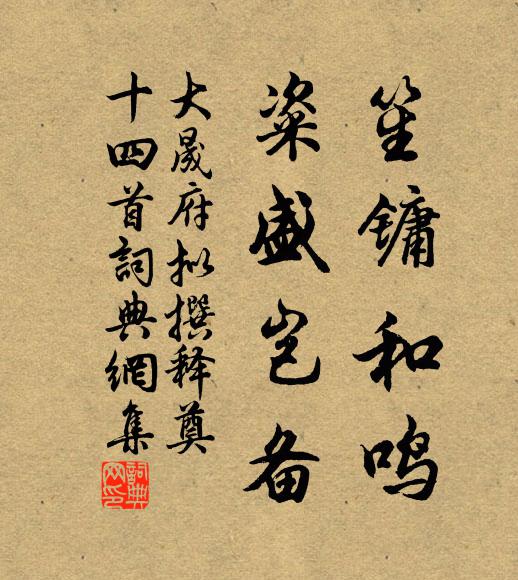 笙镛和鸣
粢盛岂备
大晟府拟撰释奠
十四首詞典網集
詞典网印